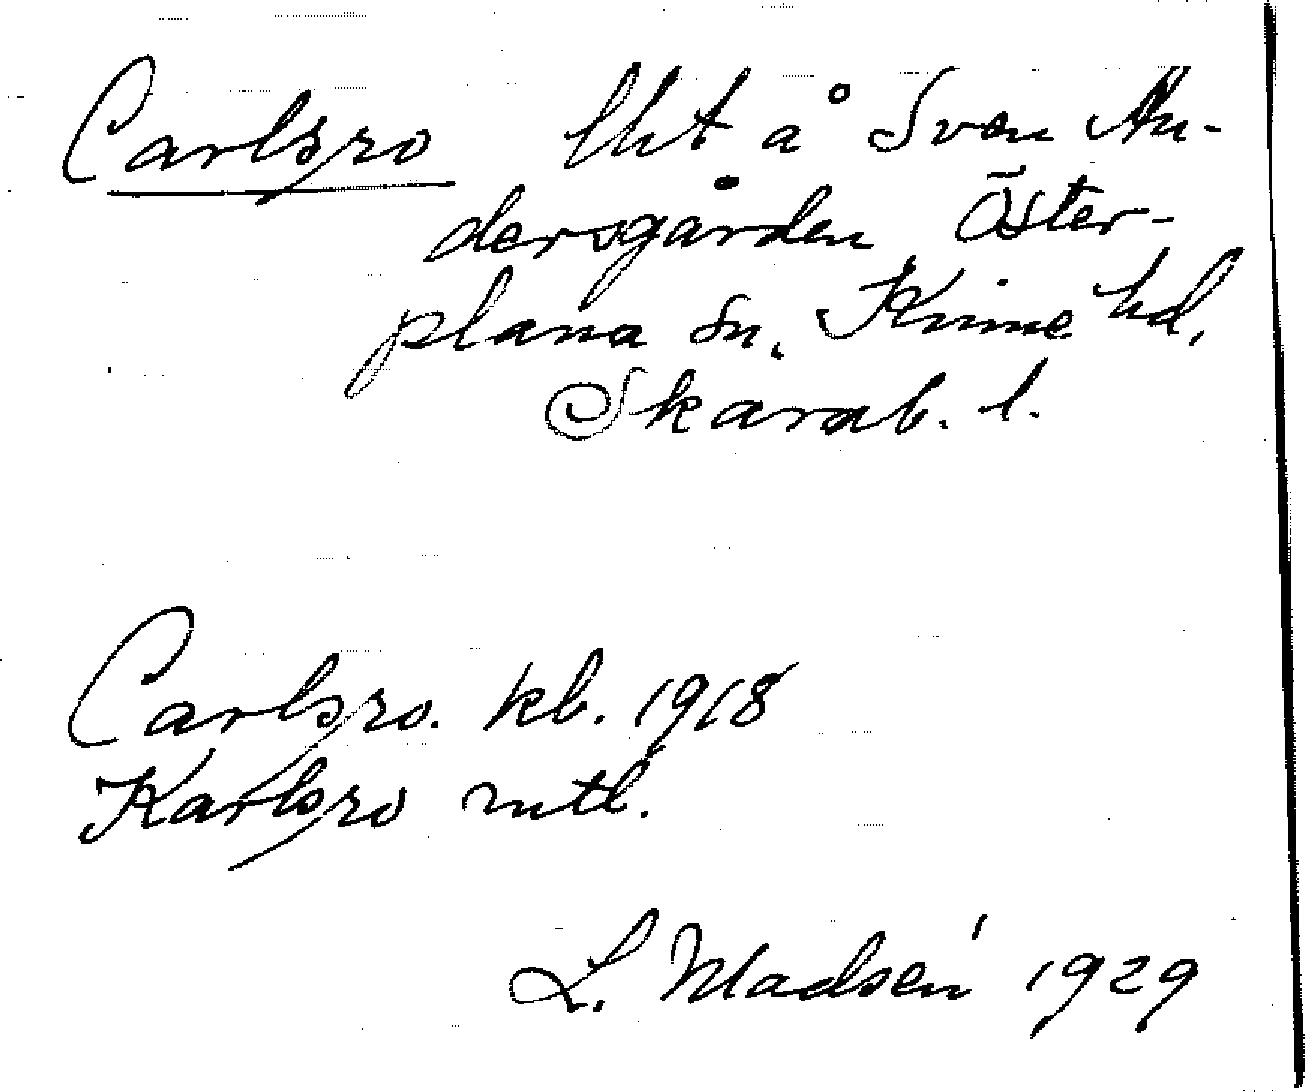 Carlsro lht å Sven An-
dersgården Öster-
plana sn. Kinne hd,
Skarab. l.
Carlsro. kb. 1918
Karlsro mtl.
L. Madsén 1929